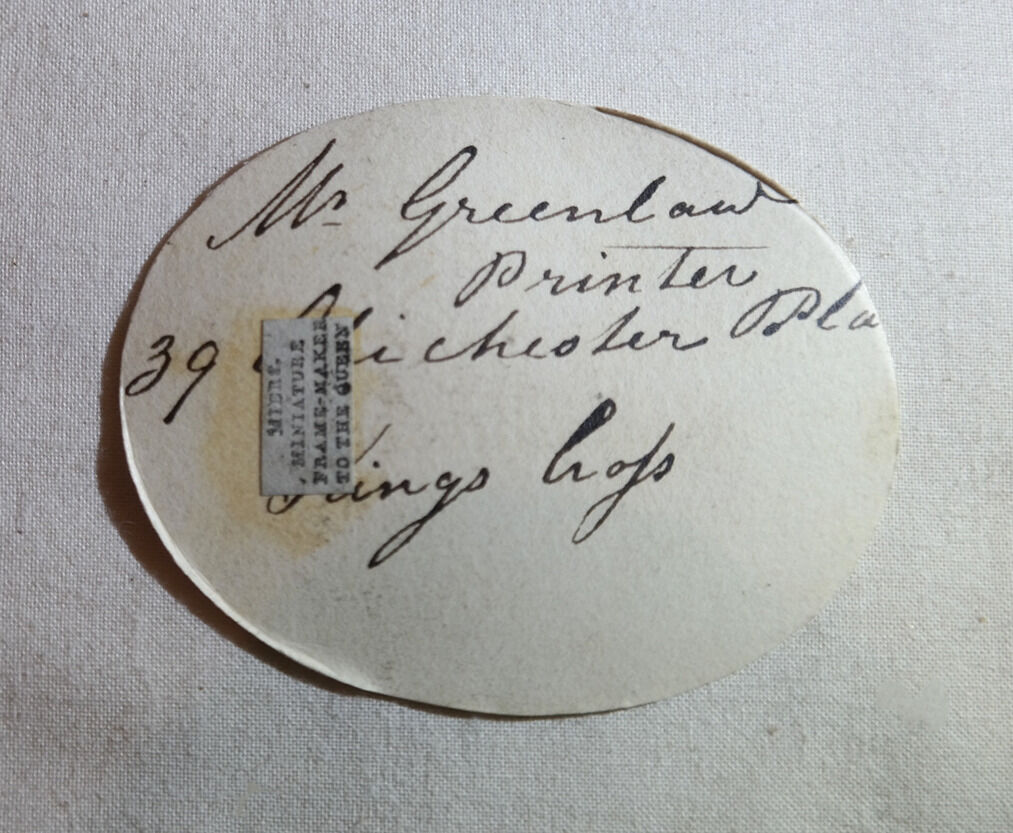 Mr Greenlaw
Printer
39 Chichester Pla
Kings Croſs
MIERS,
MINIATURE
FRAME-MAKER
TO THE QUEEN